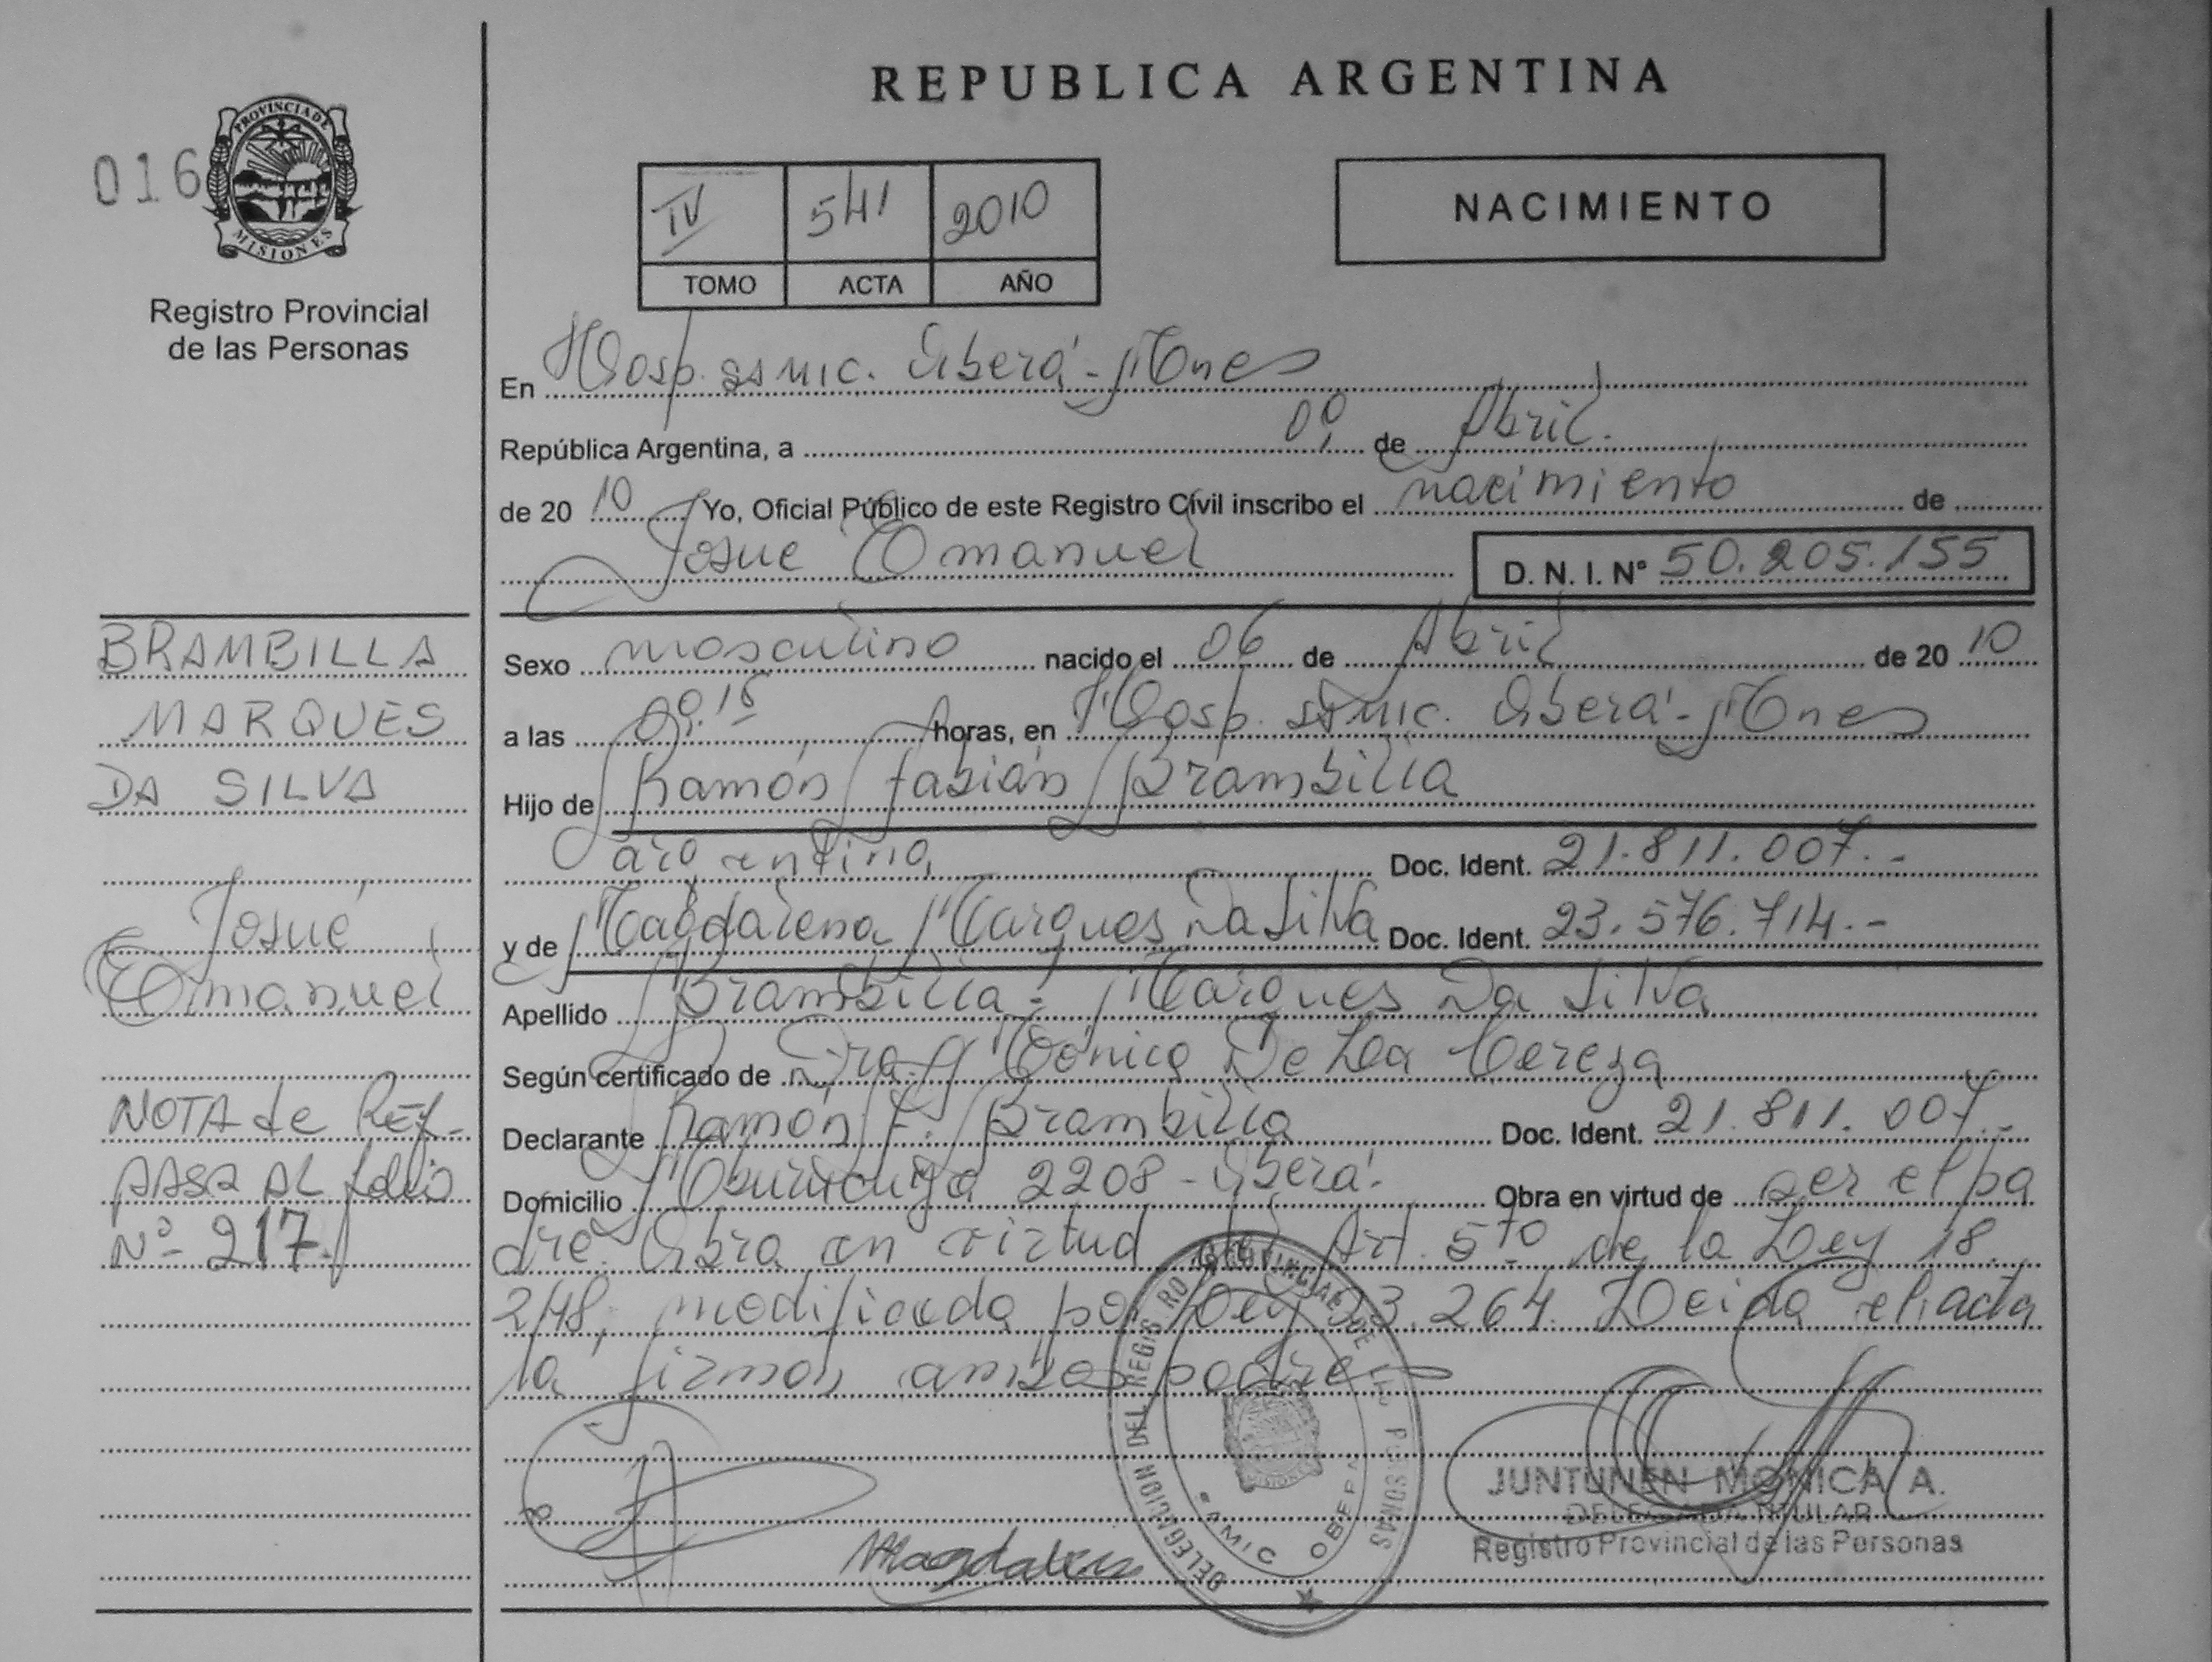 REPUBLICA ARGENTINA
016
PROVINCIA DE
MISIONES
Registro Provincial
de las Personas
IV 541 2010
TOMO ACTA AÑO
NACIMIENTO
En Hosp. SAMIC. Oberá - Mnes
República Argentina, a 09 de Abril.
de 20 10 Yo, Oficial Público de este Registro Civil inscribo el nacimiento de
Josué Emanuel D. N. I. N° 50.205.155
BRAMBILLA
MARQUES
DA SILVA
Josué
Emanuel
NOTA de Ref.
PASA AL folio
Nº 217.
Sexo masculino nacido el 06 de Abril de 20 10
a las 09.15 horas, en Hosp. SAMIC. Oberá - Mnes
Hijo de Ramón Fabián Brambilla
argentino Doc. Ident. 21.811.007.-
y de Magdalena Marques Da Silva Doc. Ident. 23.576.714.-
Apellido Brambilla - Marques Da Silva
Según certificado de Dra. Mónica De La
Declarante Ramón F. Brambilla Doc. Ident. 21.811.007.-
Domicilio 2208 - Oberá. Obra en virtud de ser el pa
dre. Obra en virtud del Art. 5to de la Ley 18.
248, modificada por Ley 23.264. Leida el acta
la firman ambos padres
DELEGACION DEL REGISTRO PROVINCIAL DE LAS PERSONAS
SAMIC OBERA
Magdalena
JUNTUNEN MONICA A.
DELEGADA TITULAR
Registro Provincial de las Personas